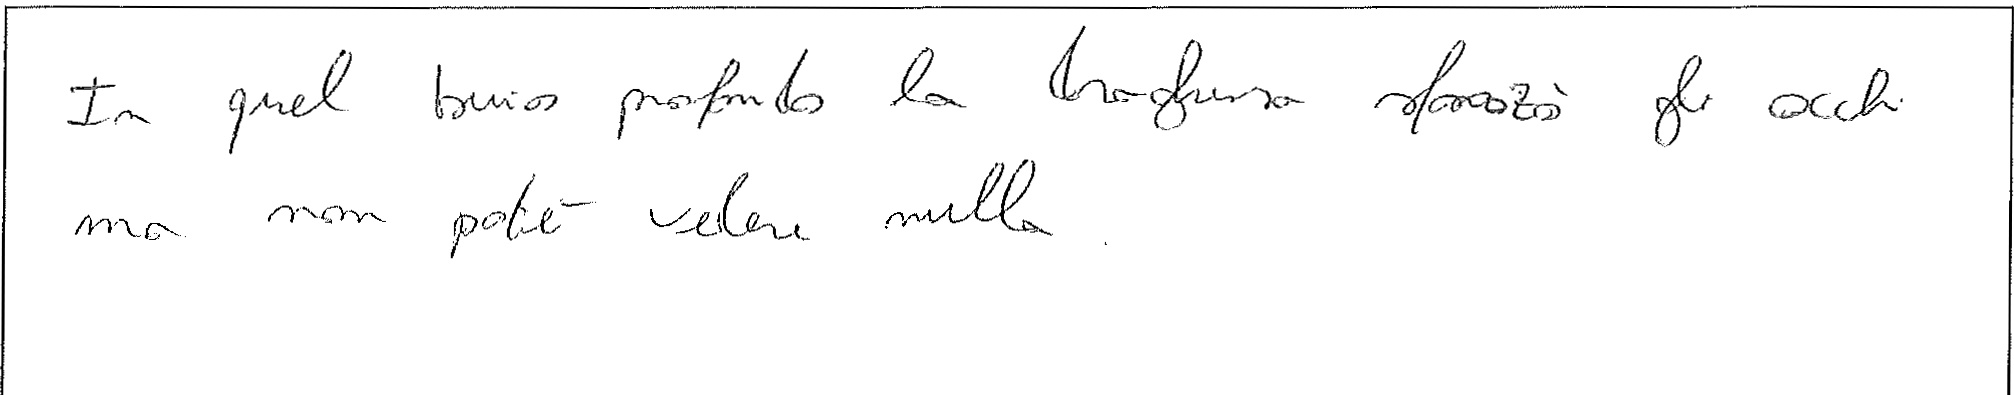 In quel buio profondo la sforzò gli occhi
ma non poté vedere nulla.